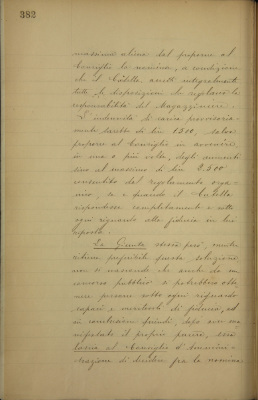 382
massima ritiene dal proporre al
Consiglio la nomina, a condizione
che il Cátella, accetti integralmente
tutte le disposizioni che regolano la
responsabilità del Magazziniere.
L'indennità di carica provvisoria-
mente sarebbe di Lire 1500, salvo
proporre al Consiglio in avvenire,
in una o più volte, degli aumenti
sino al massimo di Lire 2500
consentito dal regolamento orga-
nico, se e quando il Catella
rispondesse completamente e sotto
ogni riguardo alla fiducia in lui
riposta.
La Giunta stessa però, mentre
ritiene preferibile questa soluzione,
non si nasconde che anche da un
concorso pubblico si potrebbero otte-
nere persone sotto ogni riguardo
capaci e meritevoli di fiducia, ed
in conclusione quindi, dopo aver ma-
nifestato il proprio parere,
lascia al Consiglio d'Ammini-
strazione di decidere fra la nomina